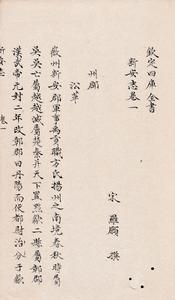 欽定四庫全書
新安志卷一
宋 羅願 撰
州郡
沿革
歙州新安郡軍事爲貢職方氏揚州之南境春秋時屬
吳吳亡屬越越滅屬楚秦并天下置黟歙二縣屬鄣郡
漢武帝元封二年改鄣郡曰丹陽而使都尉治分于歙
新安志
卷一